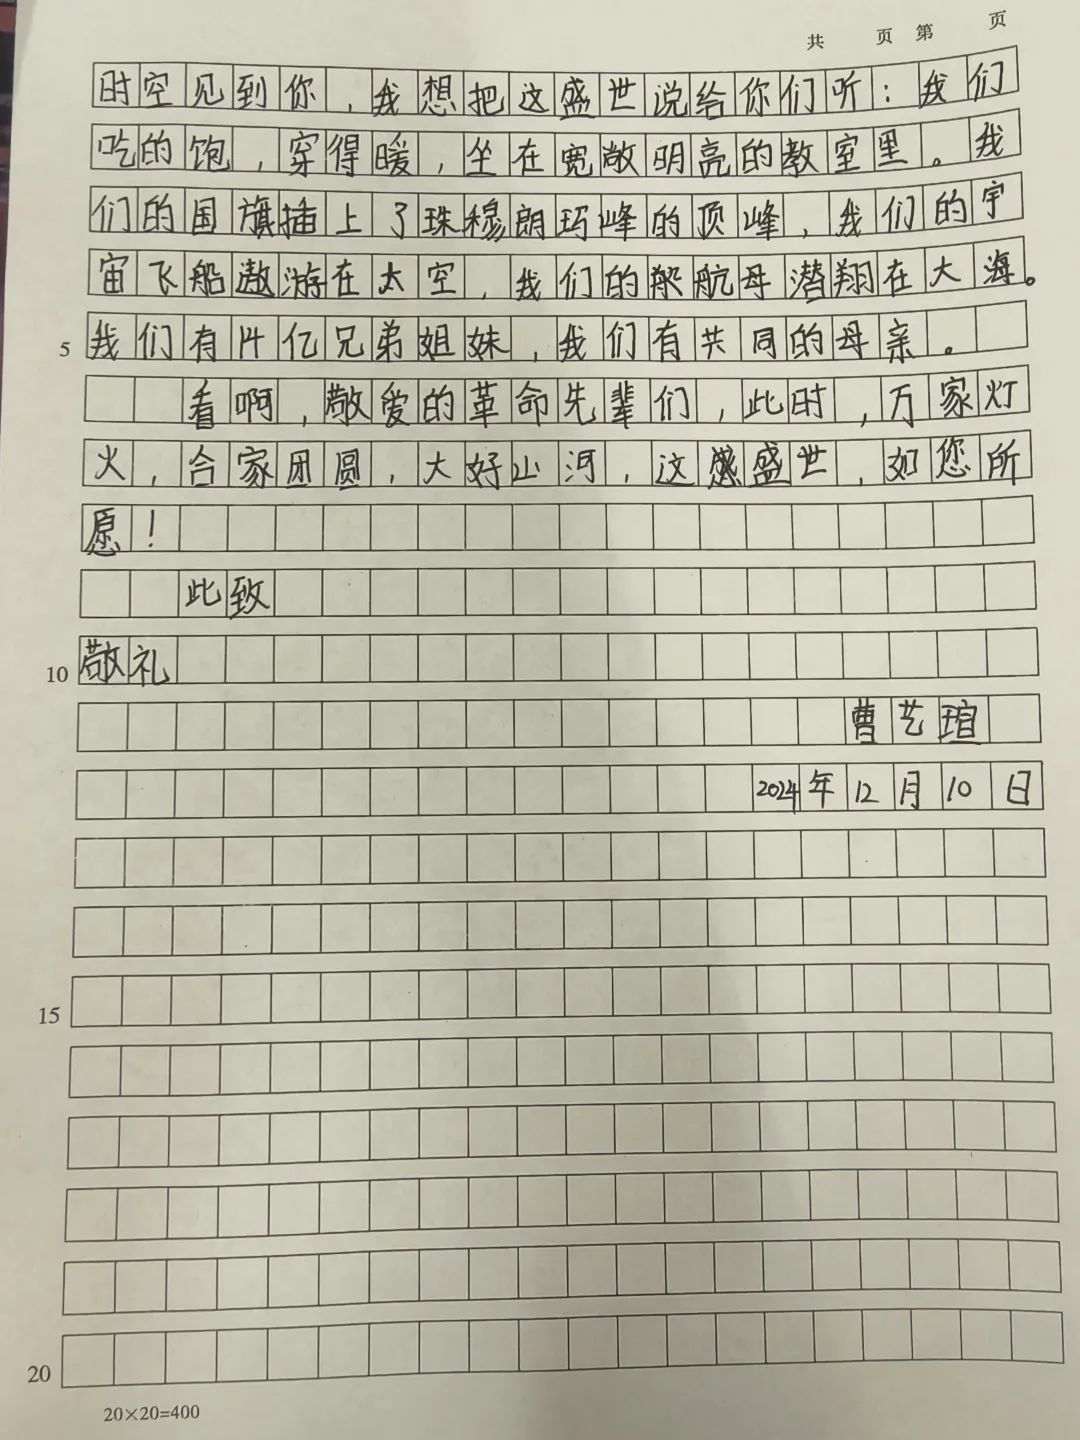 共 页 第 页
时空见到你，我想把这盛世说给你们听：我们
吃的饱，穿得暖，坐在宽敞明亮的教室里。我
们的国旗插上了珠穆朗玛峰的顶峰，我们的宇
宙飞船遨游在太空，我们的船航母潜翔在大海。
5 我们有14亿兄弟姐妹，我们有共同的母亲。
看啊，敬爱的革命先辈们，此时，万家灯
火，合家团圆，大好山河，这盛世，如您所
愿！
此致
10 敬礼
曹艺瑄
2024年12月10日
15
20
20×20=400